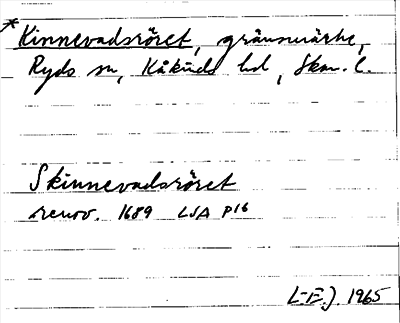 *Kinnevadsröset, gränsmärke,
Ryds sn, Kåkinds hd, Skar. l.
Skinnevadsröset
renov. 1689 LSA P16
L-E.J. 1965